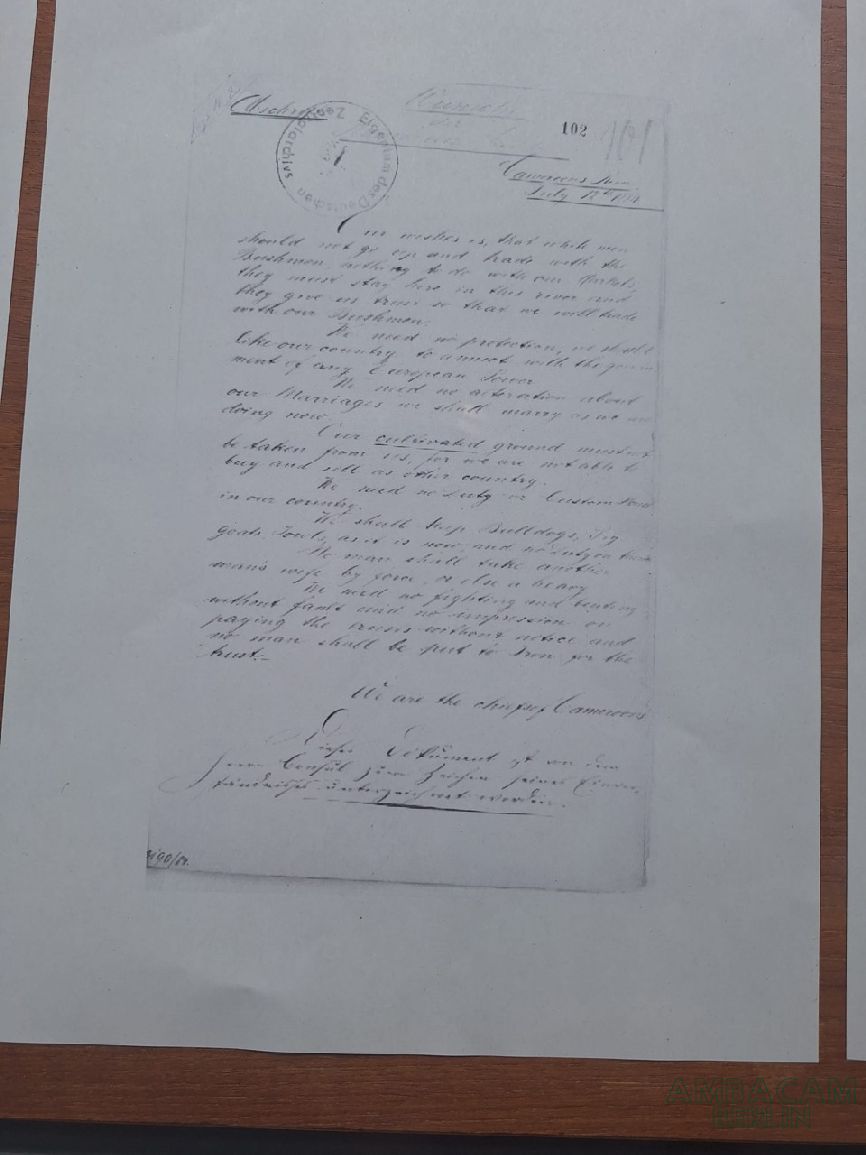 Abschrift
Wünsche
der
102
101
Eigentum der Deutschen Zentralarchivs
Cameroons River
July 12th 1884
Our wishes is, that white men
should not go up and trade with the
Bushmen, nothing to do with our Markets,
they must stay here in this river and
they give us trust so that we will trade
with our Bushmen.
We need no protection, we should
like our country to annect with the govern
ment of any European Power
We need no alteration about
our Marriages we shall marry as we are
doing now.
Our cultivated ground must not
be taken from us, for we are not able to
buy and sell as other country.
We need no Duty or Custom House
in our country.
We shall keep Bulldogs, Pig
goats, Fowls, as it is now, and no duty on them
No man shall take another
man's wife by force, or else a heavy
We need no fighting and beating
without fault and no impression on
paying the trusts without notice and
no man shall be put to Iron for the
trust.
We are the chiefs of Cameroons
Dieses Dokument ist von dem
Herrn Consul zum Zeichen seines Einver-
ständnisses unterzeichnet worden.
AMBACAM
BERLIN